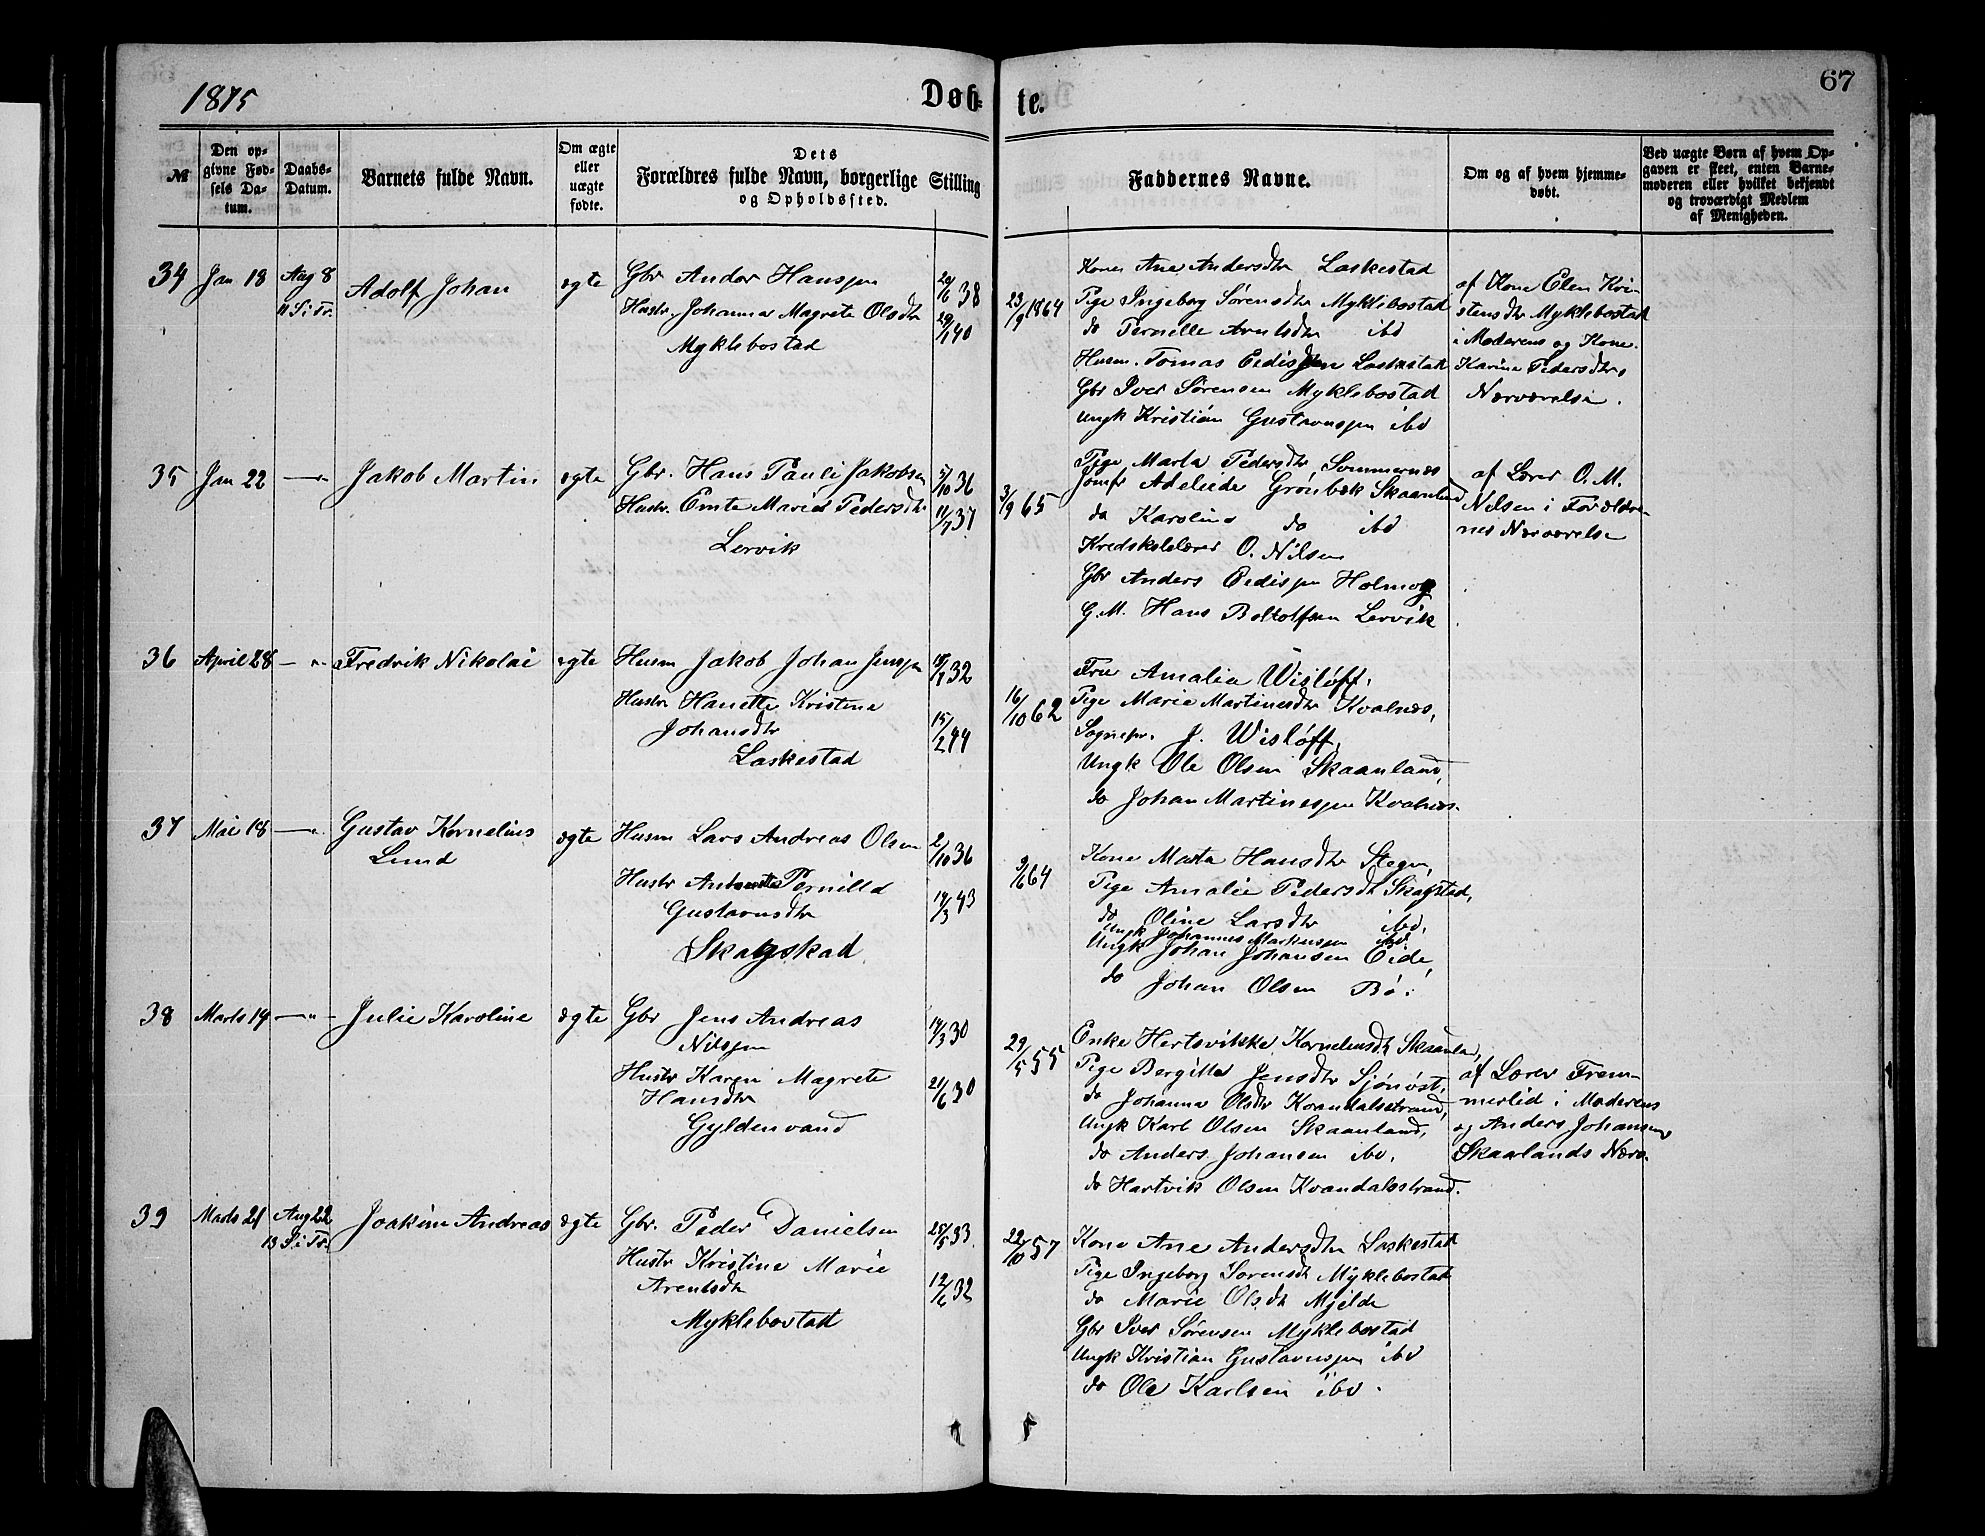 1875
Døb-
te.
67
№
Den op-
givne Fød-
sels Da-
tum.
Daabs-
Datum.
Barnets fulde Navn.
Om ægte
eller
uægte
fødte.
Dets
Forældres fulde Navn, borgerlige Stilling
og Opholdssted.
Faddernes Navne.
Om og af hvem hjemme-
døbt.
Ved uægte Børn af hvem Op-
gaven er skeet, enten Barne-
moderen eller hvilket bekjendt
og troværdigt Medlem
af Menigheden.
34 Jan 18 Aug 8
11 S i Tr.
Adolf Johan
egte
Gbr Andor Hanssen
Hustr. Johanna Magrete Olsdtr
Myklebostad
20/6 38
29/1 40
23/9 1864
Kone Ane Andersdtr Laskestad
Pige Ingeborg Sørensdtr Myklebostad
do Pernille Arntsdtr ibd
Husm. Tomas Eedissen Laskestad
Gbr Iver Sørensen Myklebostad
Ungk Kristian Gustavussen ibd
af Kone Elen Kri-
stensdtr Myklebostad
i Moderens og Kone
Karina Pedersdtrs
Nærværelse.
35 Jan 22 —"—
Jakob Martin
egte
Gbr. Hans Pauli Jakobsen
Hustr. Emte Marie Pedersdtr
Lervik
5/10 36
11/7 37
3/9 65
Pige Marta Pedersdtr Sommernes
Jomfr Adeliede Grønbæk Skaanland
do Karoline do ibd
Kredskolelærer O. Nilsen
Gbr Anders Eedissen Holmog
G.M. Hans Boltolfsen Lervik
af Lærer O. M.
Nilsen i Forældre-
nes Nærværelse
36 April 28 —"—
Fredrik Nikolai
egte
Husm Jakob Johan Jenssen
Hustr Hanette Kristine
Johansdtr
Laskestad
32
15/2 44
16/10 62
Fru Amalia Wisløff.
Pige Marie Martinesdtr Kvalnes,
Sognepr. J. Wisløff,
Ungk Ole Olsen Skaanland,
do Johan Martinessen Kvalnes.
37 Mai 18 —"—
Gustav Kornelius
Lund
egte
Husm Lars Andreas Olsen
Hustr Antonette Pernilla
Gustavusdtr
Skagstad
2/10 36
14/3 43
9/6 64
Kone Marta Hansdtr Stegen
Pige Amalie Pedersdtr Skagstad,
do Oline Larsdtr ibd,
Ungk Johannes Markussen ibd.
Ungk Johan Johansen Eide,
do Johan Olsen Bø.
38 Marts 19 —"—
Julie Karoline
egte
Gbr Jens Andreas
Nilssen
Hustr Karen Magrete
Hansdtr
Gyldenvand
14/3 30
21/6 30
29/5 55
Enke Hertsvikske Korneliusdtr Skaanla,
Pige Bergitte Jensdtr Sjønøst,
do Johanna Olsdtr Kvandalsstrand,
Ungk Karl Olsen Skaanland,
do Anders Johansen ibd.
do Hartvik Olsen Kvandalsstrand.
af Lærer Frem-
merlid i Moderens
og Anders Johansens
Skaalands Nærv.
39 Marts 21 Aug 22
13 S i Tr.
Joakim Andreas
egte
Gbr. Peder Danielsen
Hustr Kristine Marie
Arentsdtr
Myklebostad
25/5 33
12/6 32
22/10 57
Kone Ane Andersdtr Laskestad
Pige Ingeborg Sørensdtr Myklebostad
do Marie Olsdtr Mjelde
Gbr Iver Sørensen Myklebostad
Ungk Kristian Gustavussen ibd
do Ole Karlsen ibd.